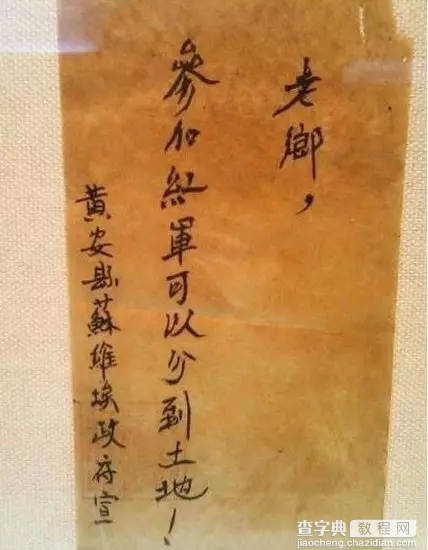 老鄉，
參加紅軍可以分到土地！
黃安縣蘇維埃政府宣
查字典 教程网
jiaocheng.chazidian.com